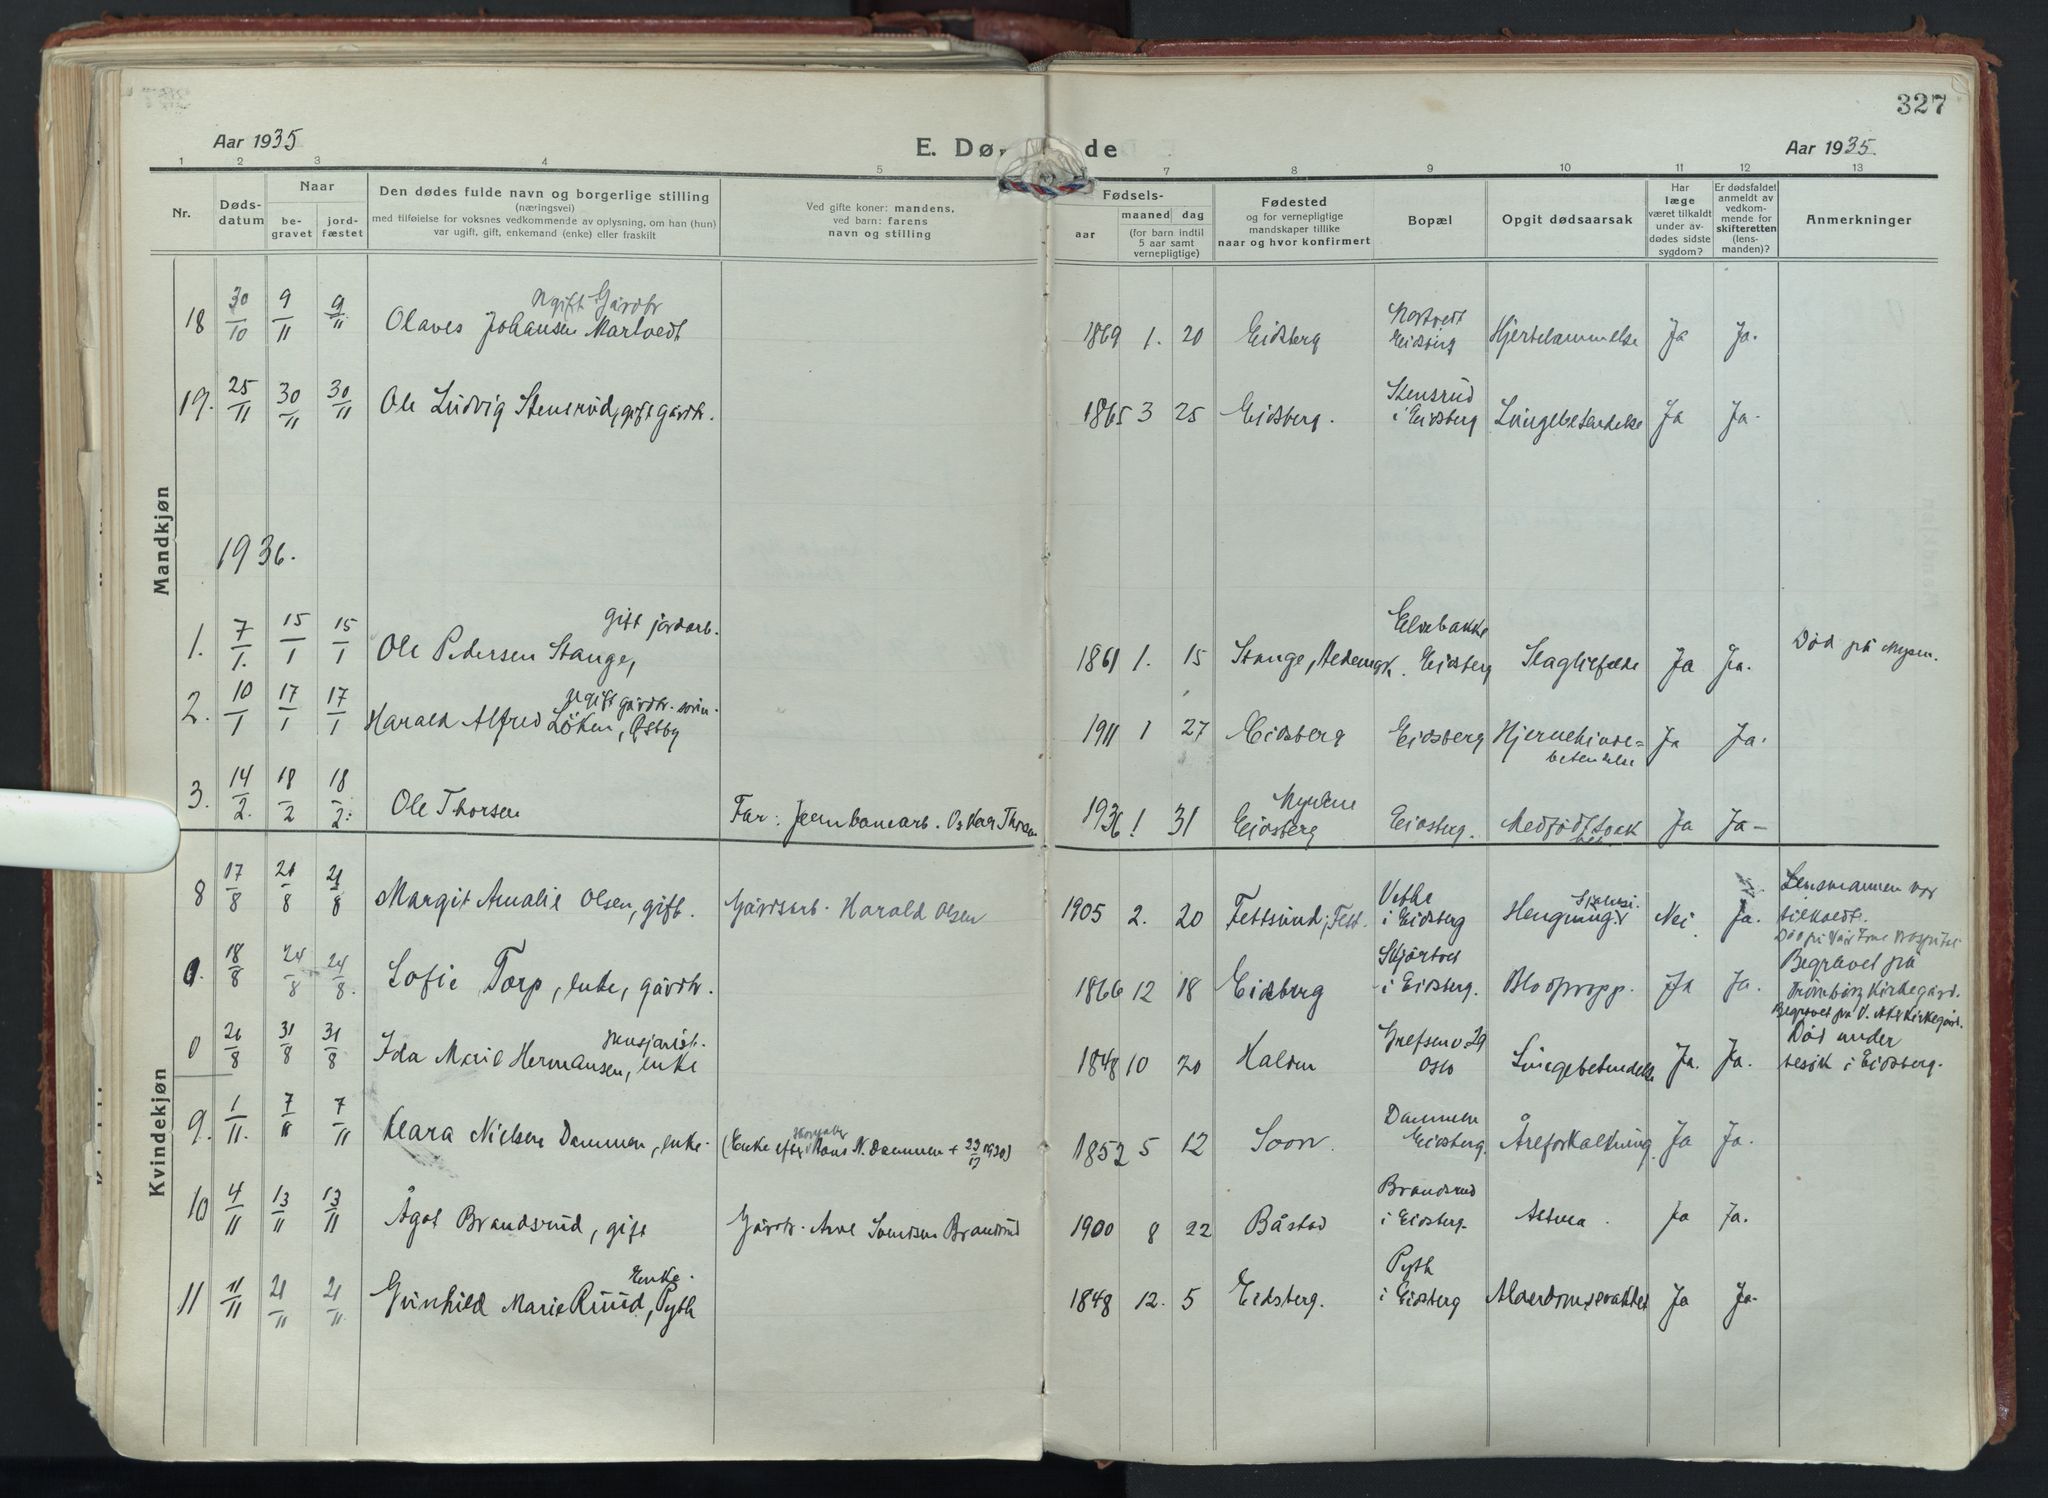 327
Aar 1935
E. Dø
de
Aar 1935.
1 2 3 4 5 7 8 9 10 11 12 13
Nr.
Døds-
datum
Naar
be-
gravet
jord-
fæstet
Den dødes fulde navn og borgerlige stilling
(næringsvei)
med tilføielse for voksnes vedkommende av oplysning, om han (hun)
var ugift, gift, enkemand (enke) eller fraskilt
Ved gifte koner: mandens,
ved barn: farens
navn og stilling
Fødsels-
aar
maaned dag
(for barn indtil
5 aar samt
vernepligtige)
Fødested
og for vernepligtige
mandskaper tillike
naar og hvor konfirmert
Bopæl
Opgit dødsaarsak
Har
læge
været tilkaldt
under av-
dødes sidste
sygdom?
Er dødsfaldet
anmeldt av
vedkom-
mende for
skifteretten
(lens-
manden)?
Anmerkninger
Mandkjøn
18 30/10 9/11 9/11 Ugift Gårdbr
Olaves Johansen Martvedt
1869 1. 20 Eidsberg
Eidsberg Hjertelammelse Ja Ja.
19. 25/11 30/11 30/11 Ole Ludvig Stensrud, gift gårdbr.
1865 3 25 Eidsberg. Stensrud
i Eidsberg Lungebetendelse Ja Ja.
1936.
1. 7/1. 15/1 15/1 gift jordarb.
Ole Pedersen Stange,
1861 1. 15 Stange, Hedemark. Elvebakke
Eidsberg Ja Ja. Død på Mysen.
2. 10/1 17/1 17/1 ugift gårdbr. sønn.
Harald Alfred Løken, Østby
1911 1 27 Eidsberg Eidsberg Hjernehinne=
betendelse Ja Ja.
3. 14/2. 18/2 18/2. Ole Thorsen Far: Jernbanearb. Oskar Thorsen
1936 1 31
Eidsberg Eidsberg. Medfødt svak
het Ja Ja-
Kvindekjøn
8 17/8 21/8 21/8 Margit Amalie Olsen, gift. Gårdsarb. Harald Olsen
1905 2. 20 Fettsund, Fet.
i Eidsberg Hengning Nei Ja. Lensmannen var
tilkaldt.
18/8 24/8 24/8. Sofie Torp, enke, gårdbr.
1866 12 18 Eidsberg
i Eidsberg. Blodpropp. Ja Ja. Begravet på
Trømborg Kirkegård.
0 26/8 31/8 31/8 pensjonist.
Ida Marie Hermansen, enke
1848 10 20 Halden Grefsenv.
Oslo Lungebetendelse Ja. Ja. Død under
besøk i Eidsberg.
9. 1/11. 7/11 7/11 Klara Nielsen Dammen, enke. (Enke efter Hans N. Dammen + 1930)
1852 5 12 Soon Dammen
Eidsberg. Åreforkalkning Ja Ja.
10 4/11 13/11 13/11 Ågot Brandsrud, gift Gårdbr. Arve Brandsrud
1900 8 22 Båstad Brandsrud
i Eidsberg. Ja Ja.
11 11/11 21/11 21/11 Enke.
Gunhild Marie Ruud, Pyth
1848 12. 5 Eidsberg. Pyth
i Eidsberg Alderdomssvakhet Ja Ja.